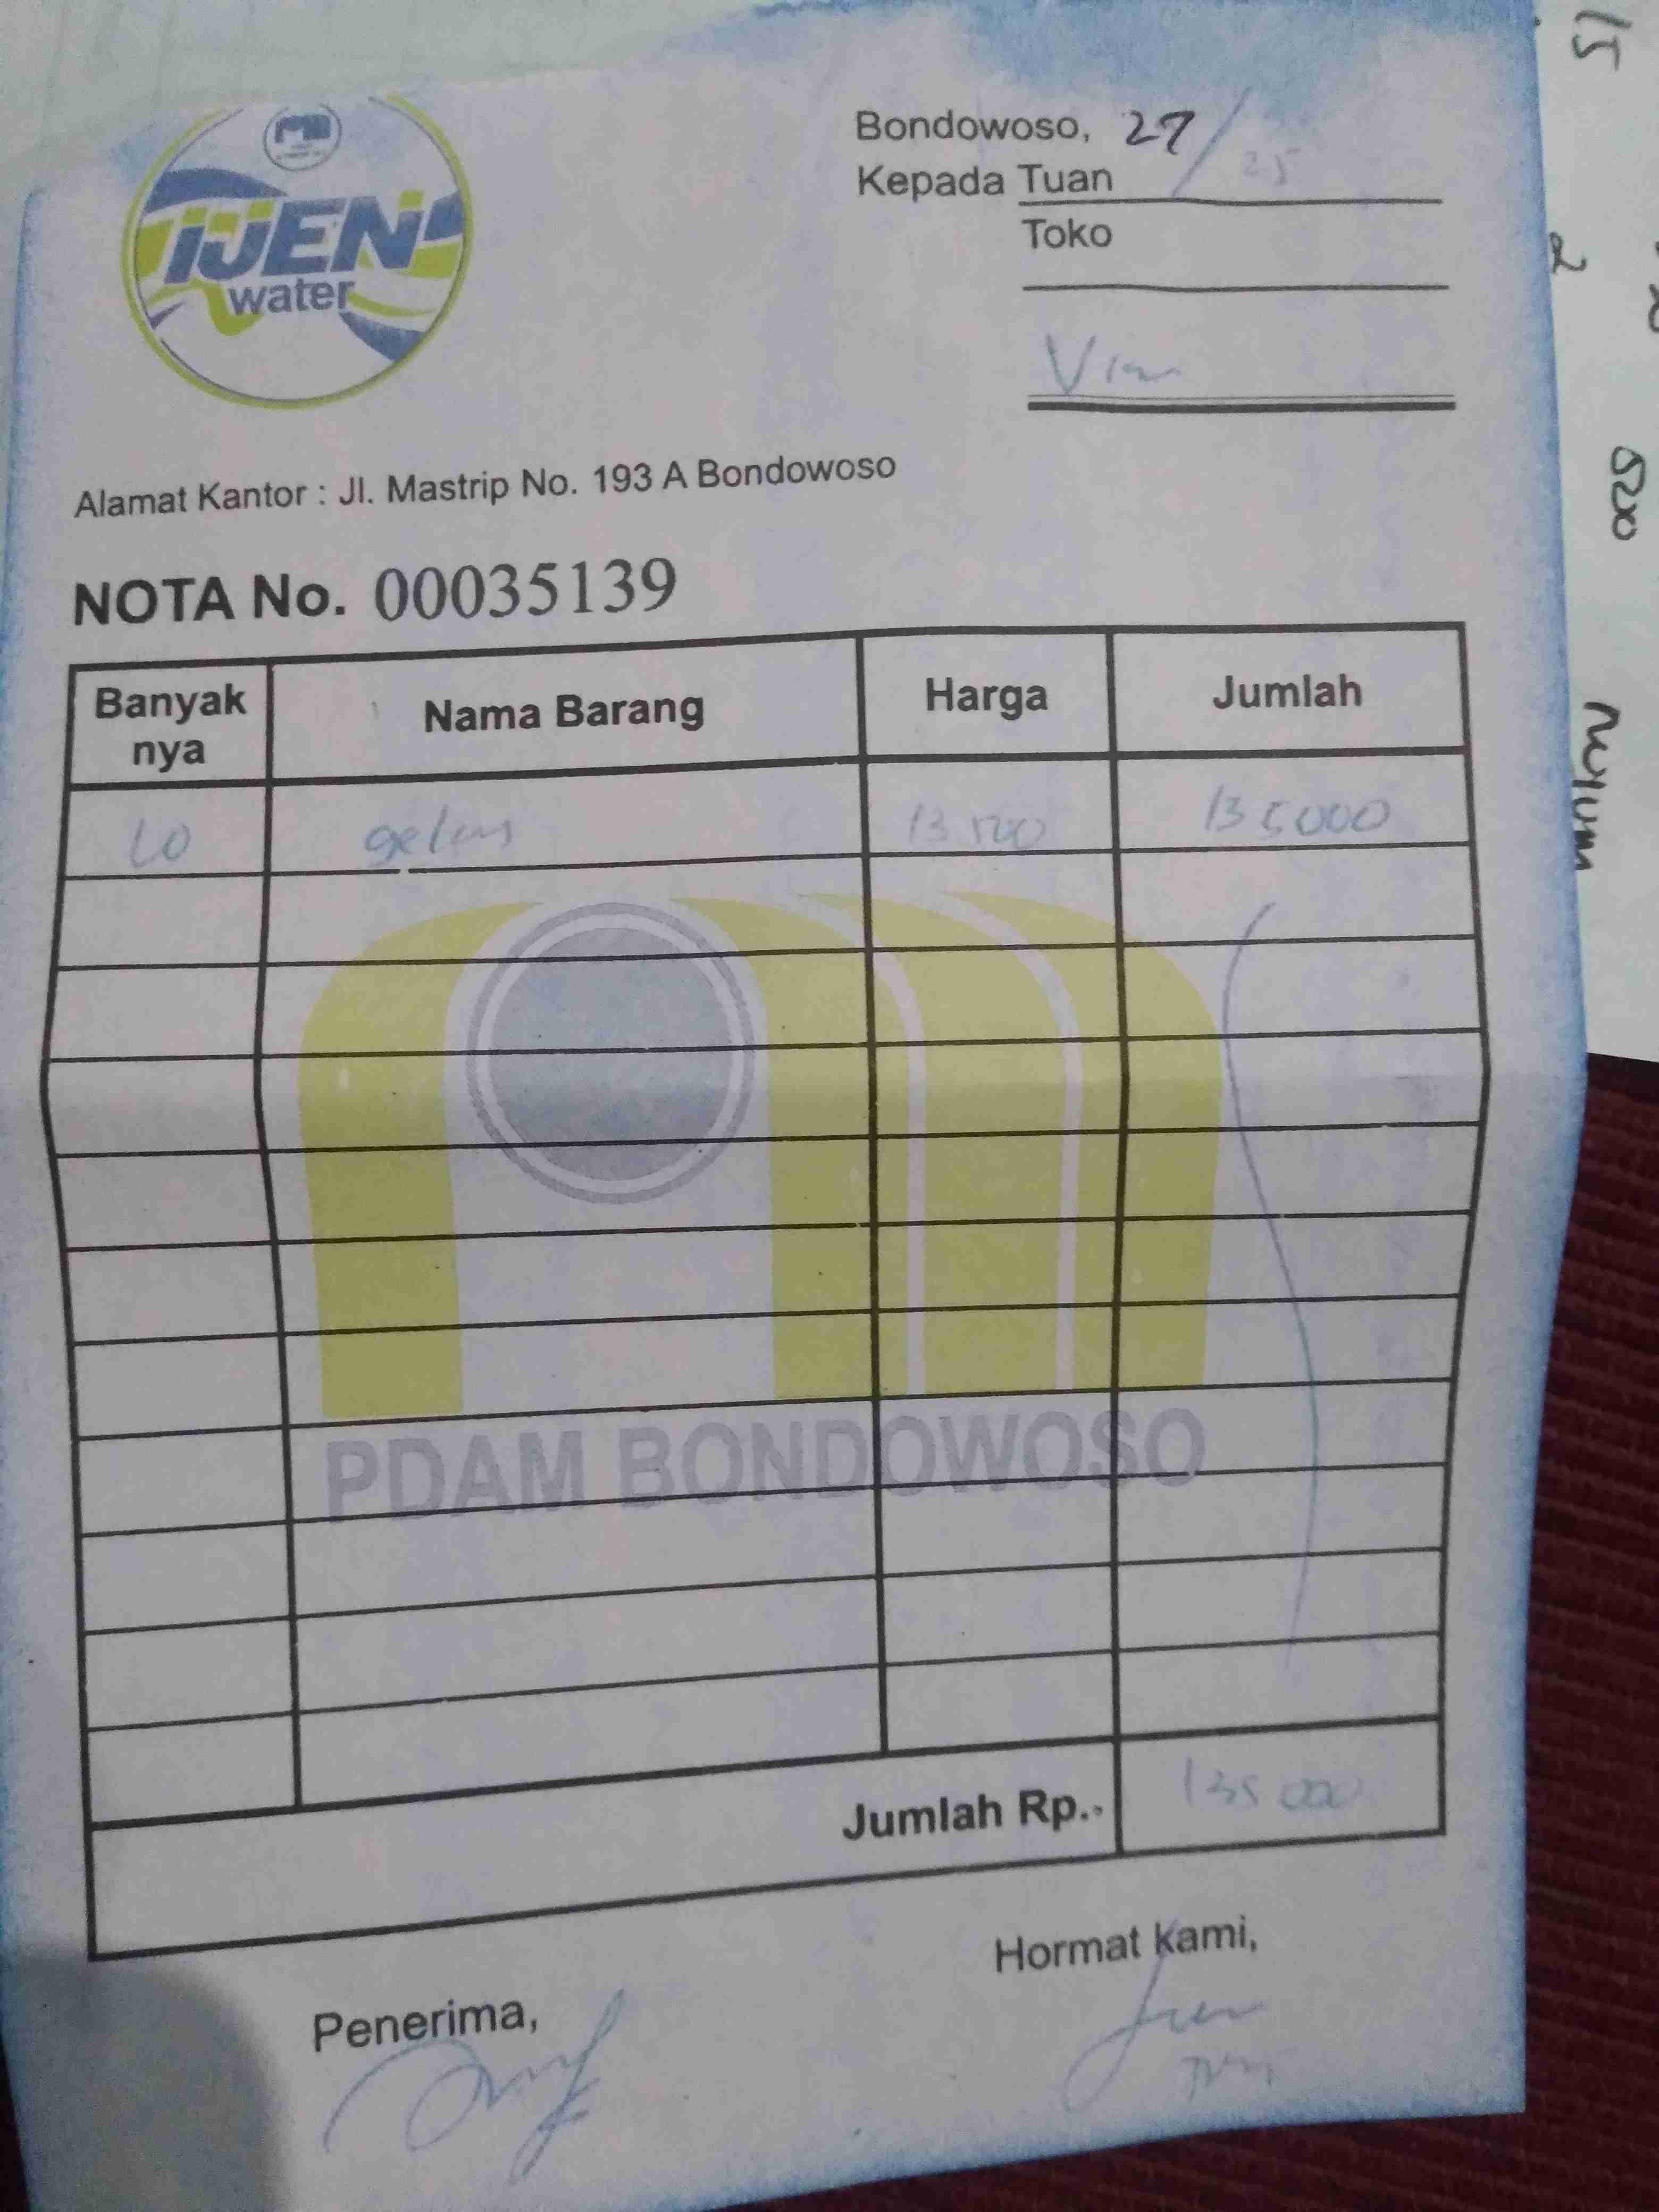 IJEN
water
Bondowoso, 27/25
Kepada Tuan
Toko
Alamat Kantor : Jl. Mastrip No. 193 A Bondowoso
NOTA No. 00035139
Banyak nya Nama Barang Harga Jumlah
10 gelas 13 500 135000
PDAM BONDOWOSO
Jumlah Rp. 135 000
Hormat Kami,
Penerima,
15
2